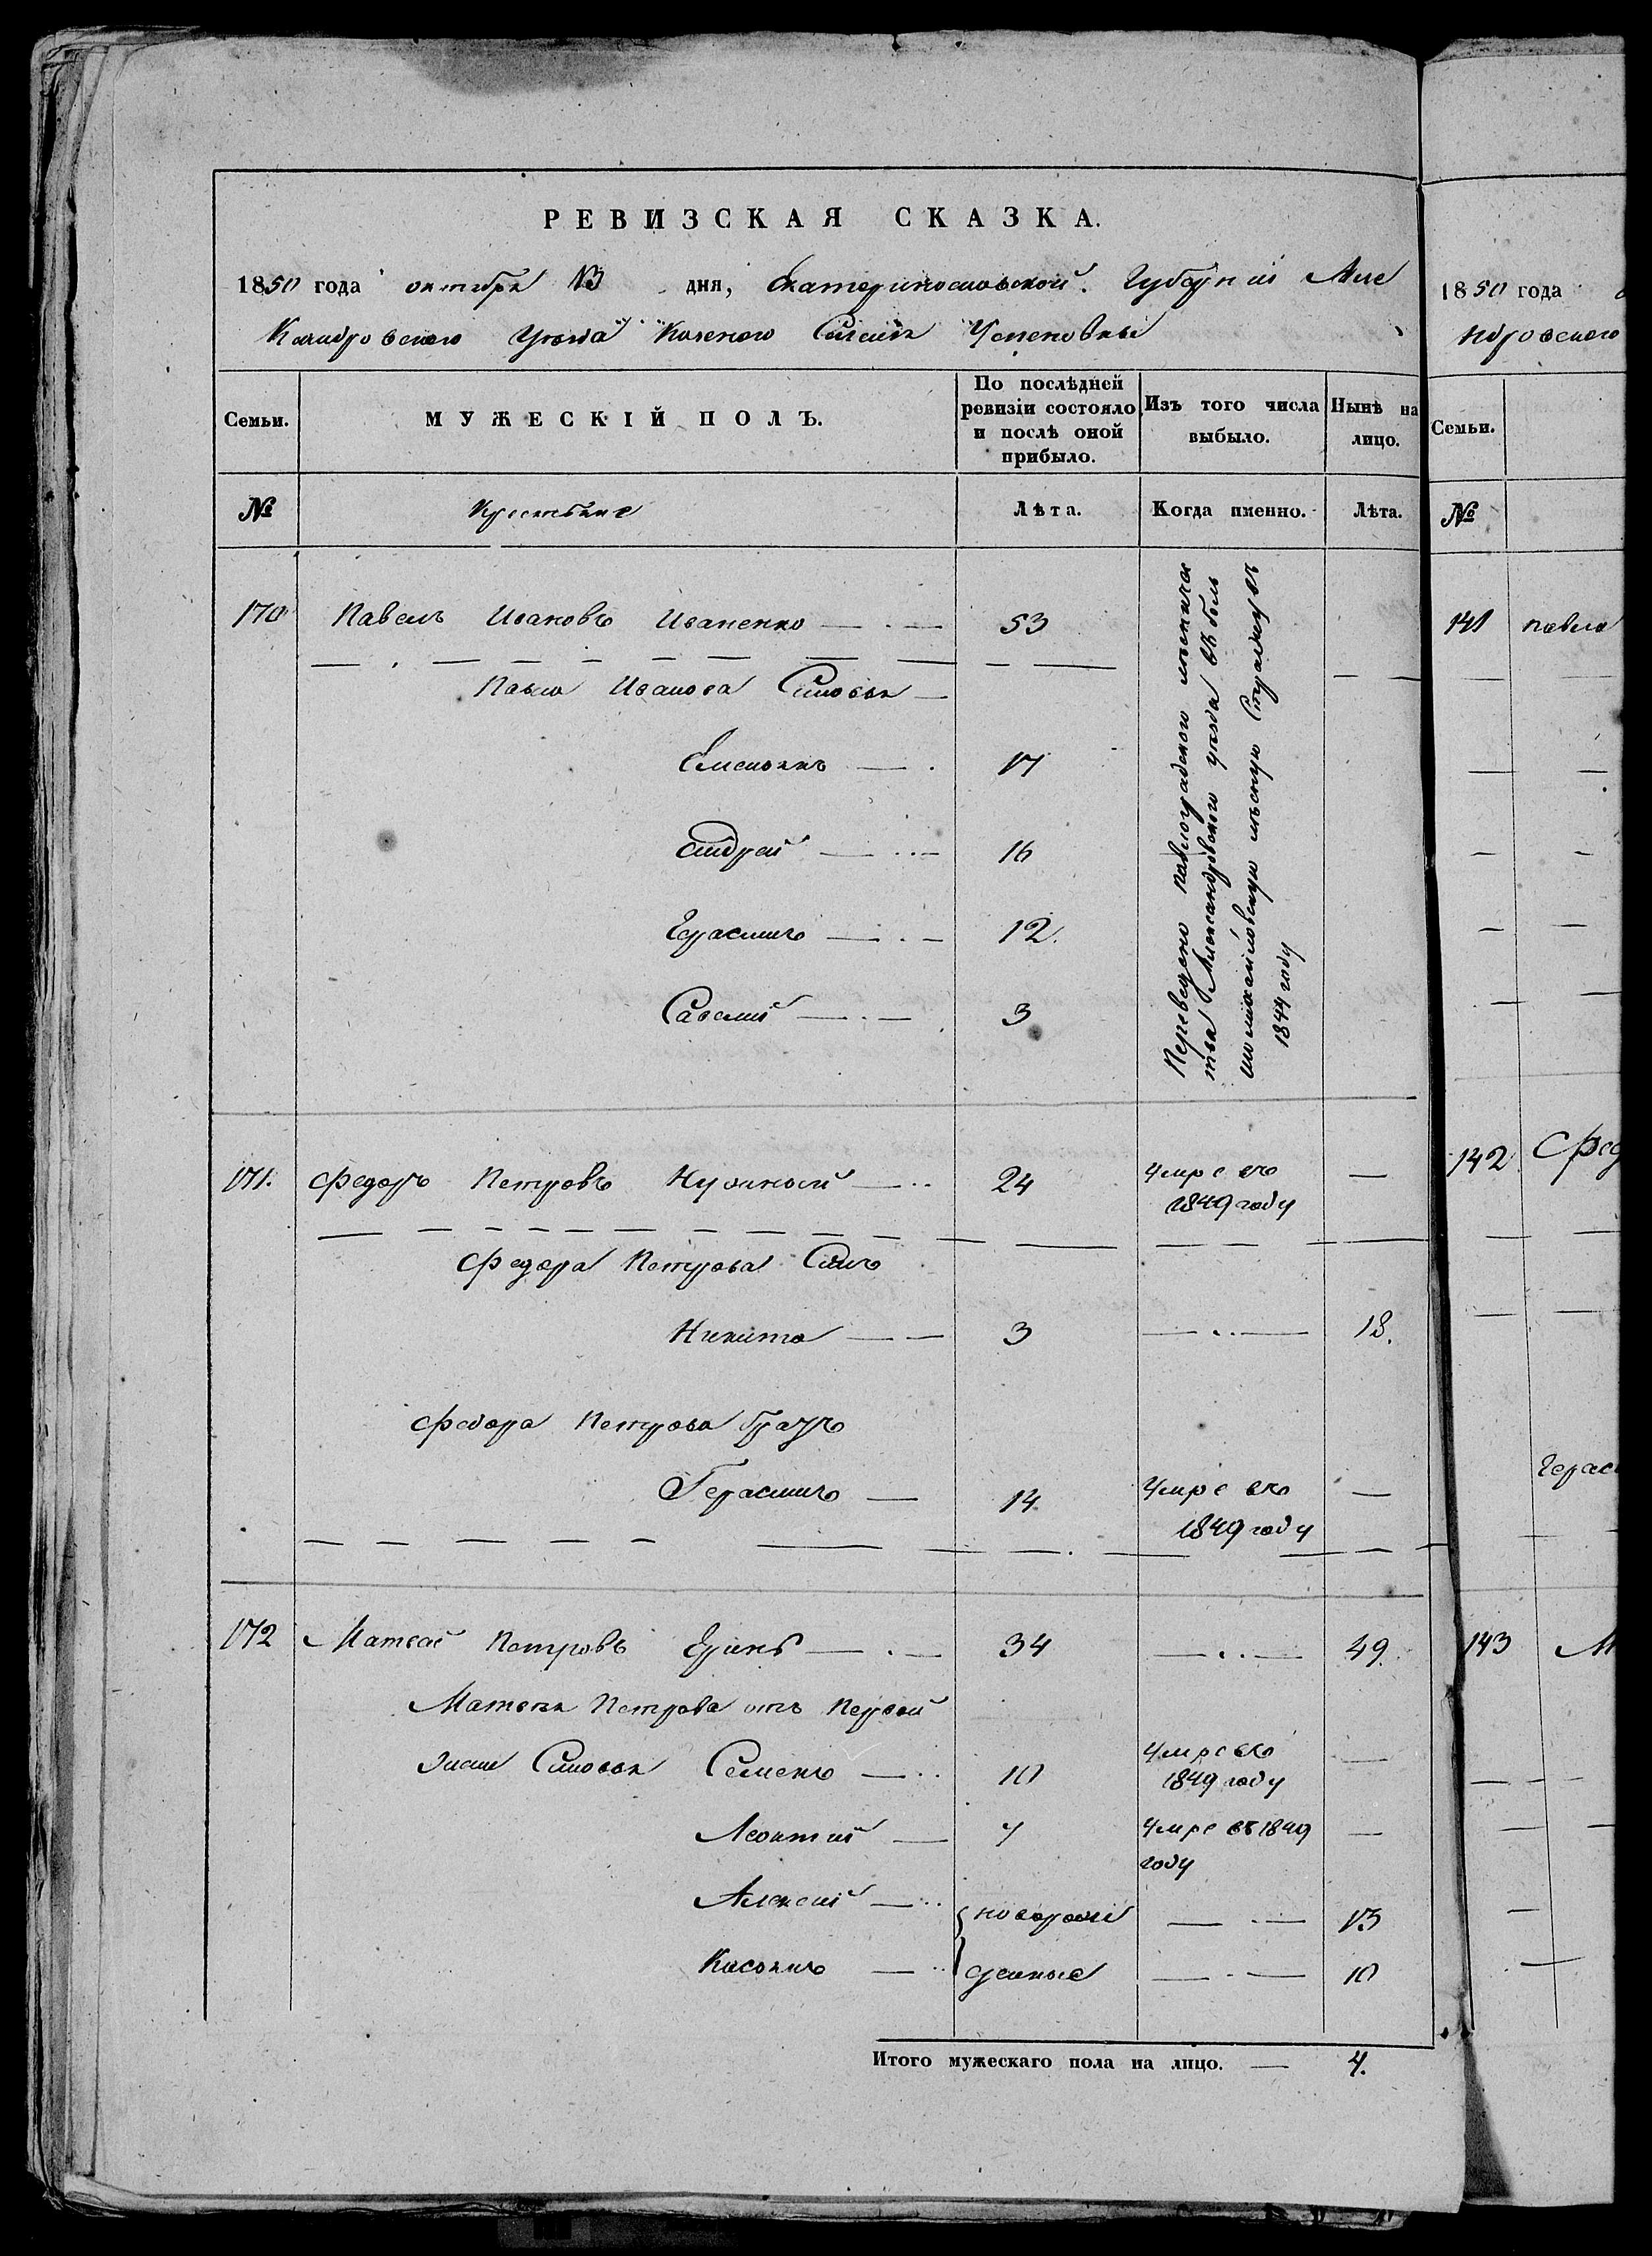 РЕВИЗСКАЯ СКАЗКА.
1850 года октября 13 дня, Екатеринославской Губернии Алек
сандровского Уезда Казеного Селения Успеновки
Семьи. МУЖЕСКІЙ ПОЛЪ. По послѣдней ревизіи состояло и послѣ оной прибыло. Изъ того числа выбыло. Нынѣ на лицо.
№ Крестьяне Лѣта. Когда именно. Лѣта.
170 Павелъ Ивановъ Иваненко 53
Павла Иванова Сыновья
Емельянъ 17
Андрей 16
Герасимъ 12
Савелий 3
Переведено павлоградского
Александровского уезда въ
михайловскую
1844 году
171. Федоръ Петровъ 24 Умре въ 1849 году —
Федора Петрова Сынъ
Никита 3 — 18.
Федора Петрова Братъ
Герасимъ 14 Умре въ 1849 году —
172 Матвей Петровъ 34 — 49.
Матвея Петрова отъ Первой
жены Сыновья Семенъ 10 Умре въ 1849 году —
Леонтий 7 Умре въ 1849 году —
Алексей новорож — 13
Касьянъ денные — 10
Итого мужескаго пола на лицо. — 4.
1850 года
ндровского
Семьи.
№
141 павла
142 Фед
Герас
143 М